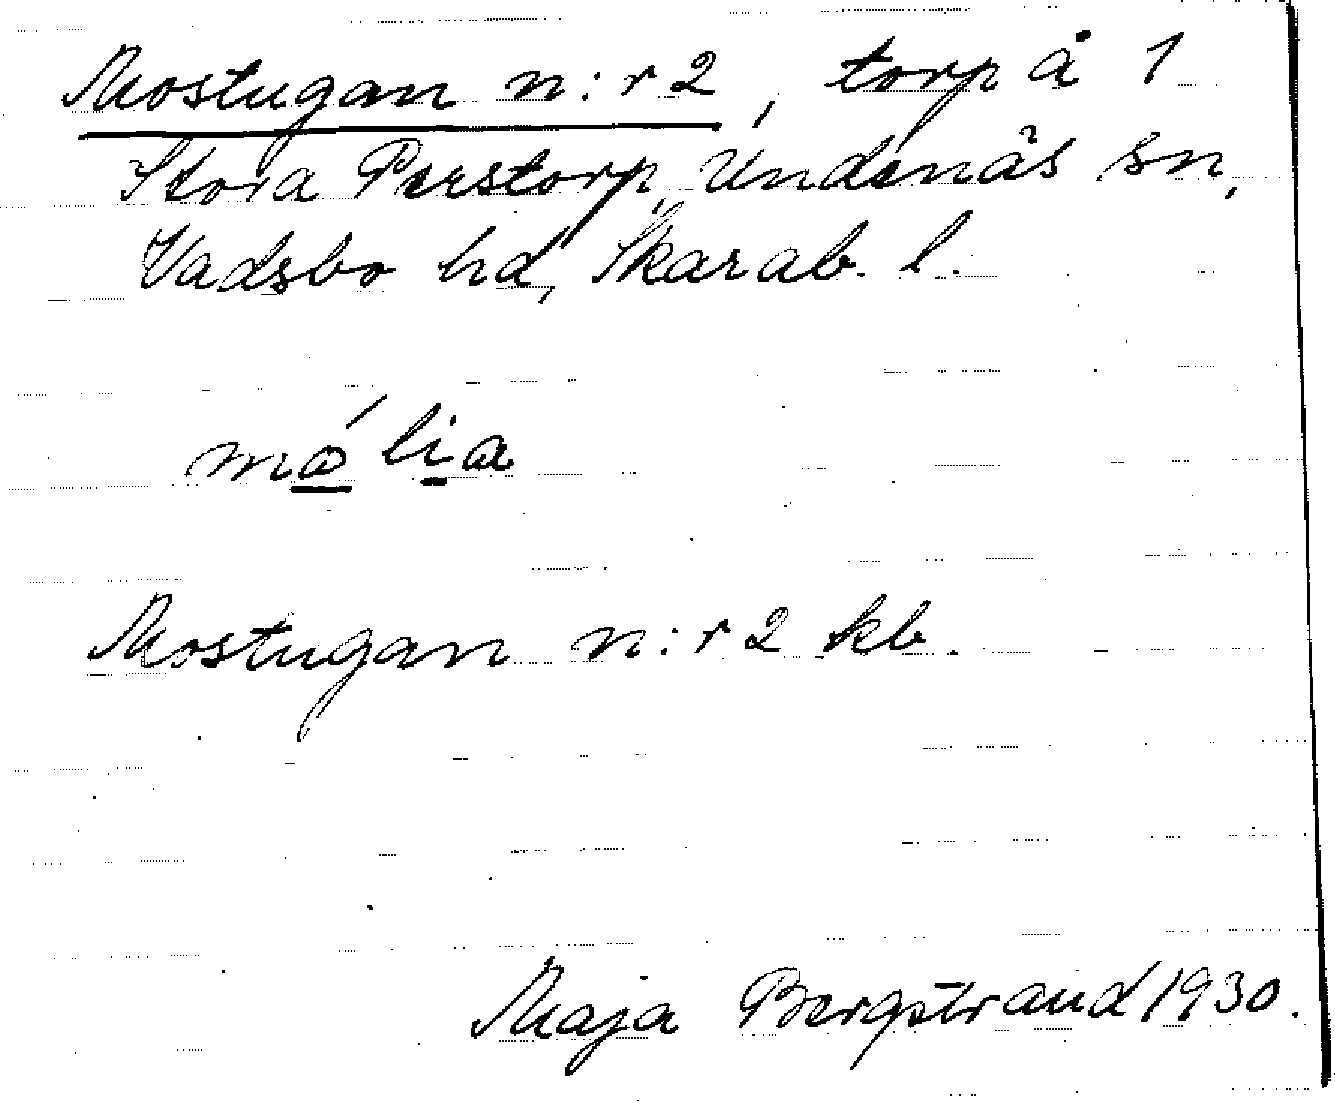 Mostugan n:r 2, torp å 1
Stora Perstorp, Undenäs sn,
Vadsbo hd, Skarab. l.
mólia
Mostugan n:r 2 kb.
Maja Bergstrand 1930.